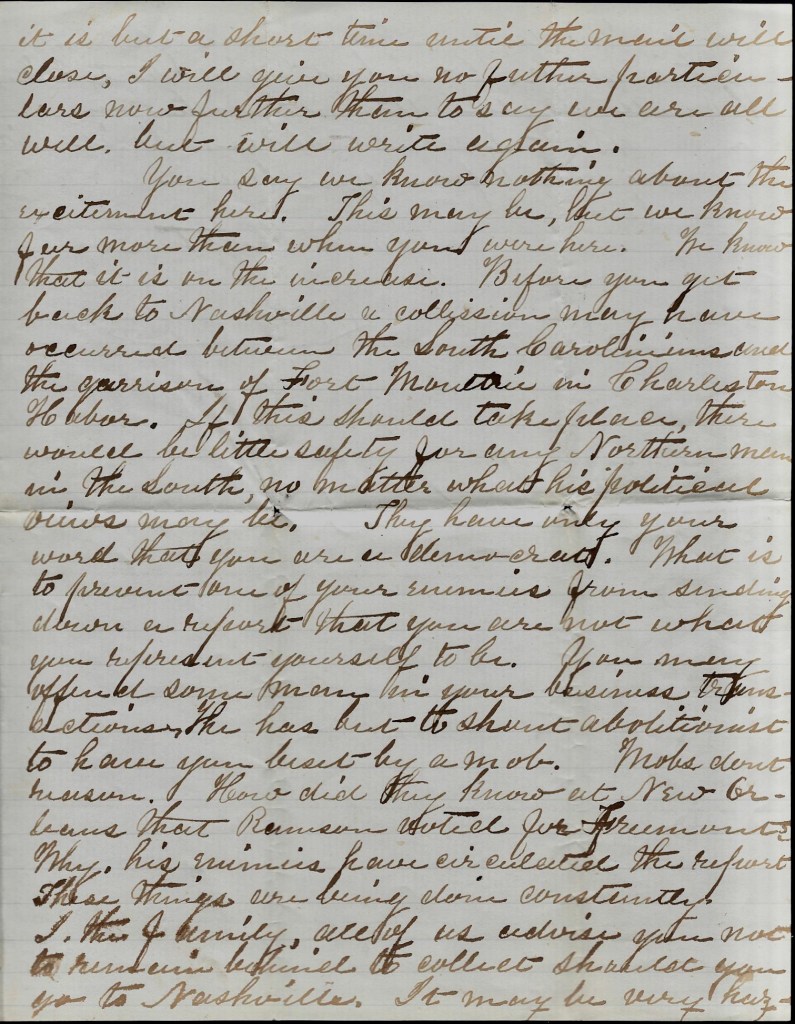 it is but a short time until the mail will
close, I will give you no futher particu-
lars now further them to say we are all
well. but will write again.
You say we know nothing about the
excitement here. This may be, but we know
fur more then when you were here. We know
that it is on the increase. Before you get
back to Nashville a collission may have
occurred between the South Carolinians and
the garrison of Fort Moultrie in Charleston
Habor. If this should take place, there
would be little safety for any Northern man
in the South, no matter what his political
views may be. They have only your
word that you are a democrat. What is
to prevent one of your enemies from sending
down a report that you are not what
you represent yourself to be. You may
offend some man in your business trans-
actions, he has but to shout abolitionist
to have you beset by a mob. Mobs dont
reason. How did they know at New Or-
leans that Ramson voted for Freemont?
Why, his enimies have circulated the report
These things are being done constantly.
I. the family, all of us advise you not
to remain behind to collect should you
go to Nashville. It may be very haz-